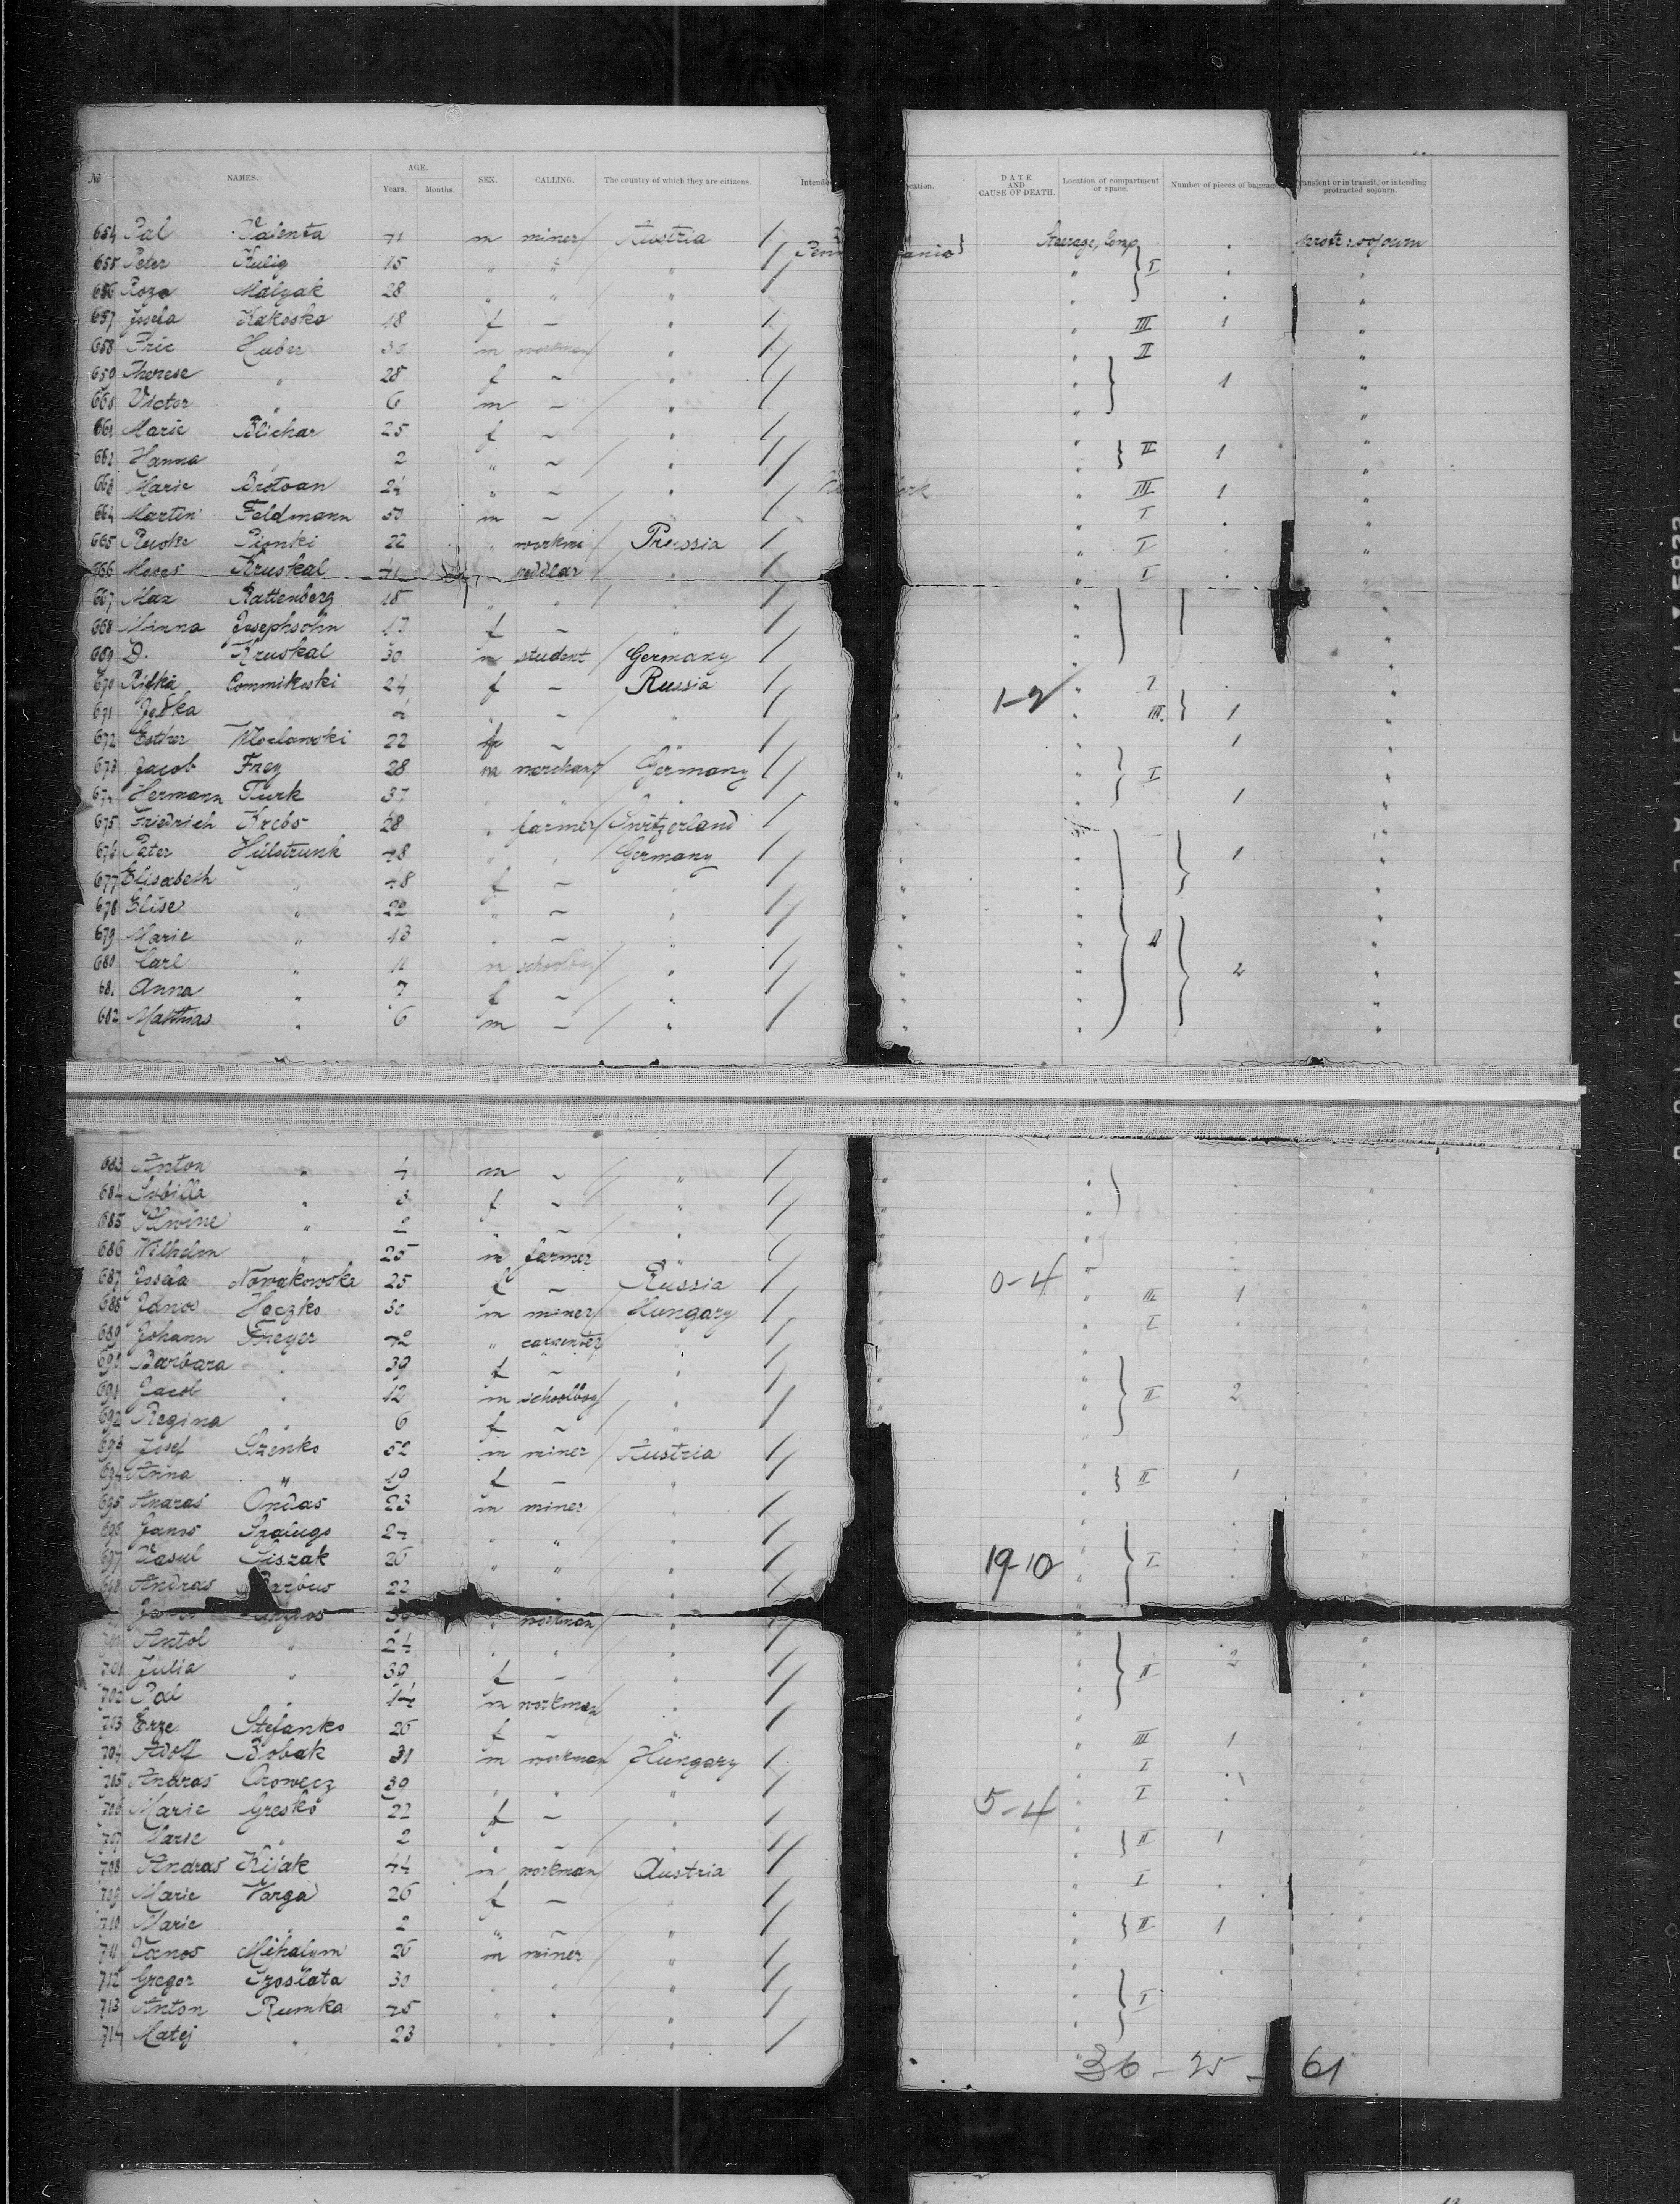 No NAMES. AGE. Years. Months. SEX. CALLING. The country of which they are citizens. Intende cation. DATE AND CAUSE OF DEATH. Location of compartment or space. Number of pieces of baggag transient or in transit, or intending protracted sojourn.
654 Pal Valenta m miner Austria Steerage, Comp.
655 Peter Kulig 15 " " " I
656 Roza Malyak 28 " " "
657 Josefa Kakosko 18 f — " III 1
658 Huber 30 m workman " II
659 Therese " 28 f — " 1
660 Victor " 6 m — "
661 Marie Blichar 25 f — "
662 Hanna " 2 " — " II 1
663 Marie Brotvan 24 " — " III 1
664 Martin Feldmann 50 m — " I
665 Pionki 22 " Prussia I
666 Moses Kruskal peddlar " I
667 Max Rattenberg 18 " " "
668 Minna Josephsohn 17 f — "
669 D. Kruskal 30 m student Germany
670 Rifka Commikoski 24 f — Russia 1-2 I
671 " — " III 1
672 Esther 22 f — " 1
673 Jacob Frey 28 m merchant Germany I
674 Hermann Turk 37 " " " 1
675 Friedrich Krebs 28 " farmer Switzerland
676 Peter Hülstrunk 48 " " Germany 1
677 Elisabeth " 48 f — "
678 Elise " 22 " — "
679 Marie " 13 " — " II
680 Carl " 11 m schoolboy " 2
681 Anna " 7 f — "
682 Matthias " 6 m — "
683 Anton " 4 m — "
684 Sibilla " 3 f — "
685 Alwine " 2 " — "
686 Wilhelm " 25 m farmer "
687 Josefa Nowakowska 25 f — Russia 0-4 III 1
688 Janos Haczko 30 m miner Hungary I
689 Johann Freyer 42 " carpenter "
690 Barbara " 39 f — "
691 Jacob " 12 m schoolboy " II 2
692 Regina " 6 f — "
693 Josef Szenko 52 m miner Austria
694 Anna " 19 f — " II 1
695 Andras Ondas 23 m miner "
696 Janos Szalugo 24 " " "
697 Vasul Tiszak 26 " " " 19-10 I
698 Andras Barbus 22 " " "
workman
Antol " 24 " " "
701 Julia " 39 f — " II 2
702 Pal " 14 m workman "
703 Erze Stefanko 26 f — " III 1
704 Adolf Bobak 31 m workman Hungary I
705 Andras Orowecz 39 " " " I
706 Marie Gresko 22 f — " 5-4
707 Marie " 2 " — " II 1
708 Andras Kijak 44 m workman Austria I
709 Marie Varga 26 f — "
710 Marie " 2 " — " II 1
711 Janos Mihalym 26 m miner "
712 Gregor Szoslata 30 " " "
713 Anton Rumka 45 " " " I
714 Matej " 23 " " "
36 - 25 - 61